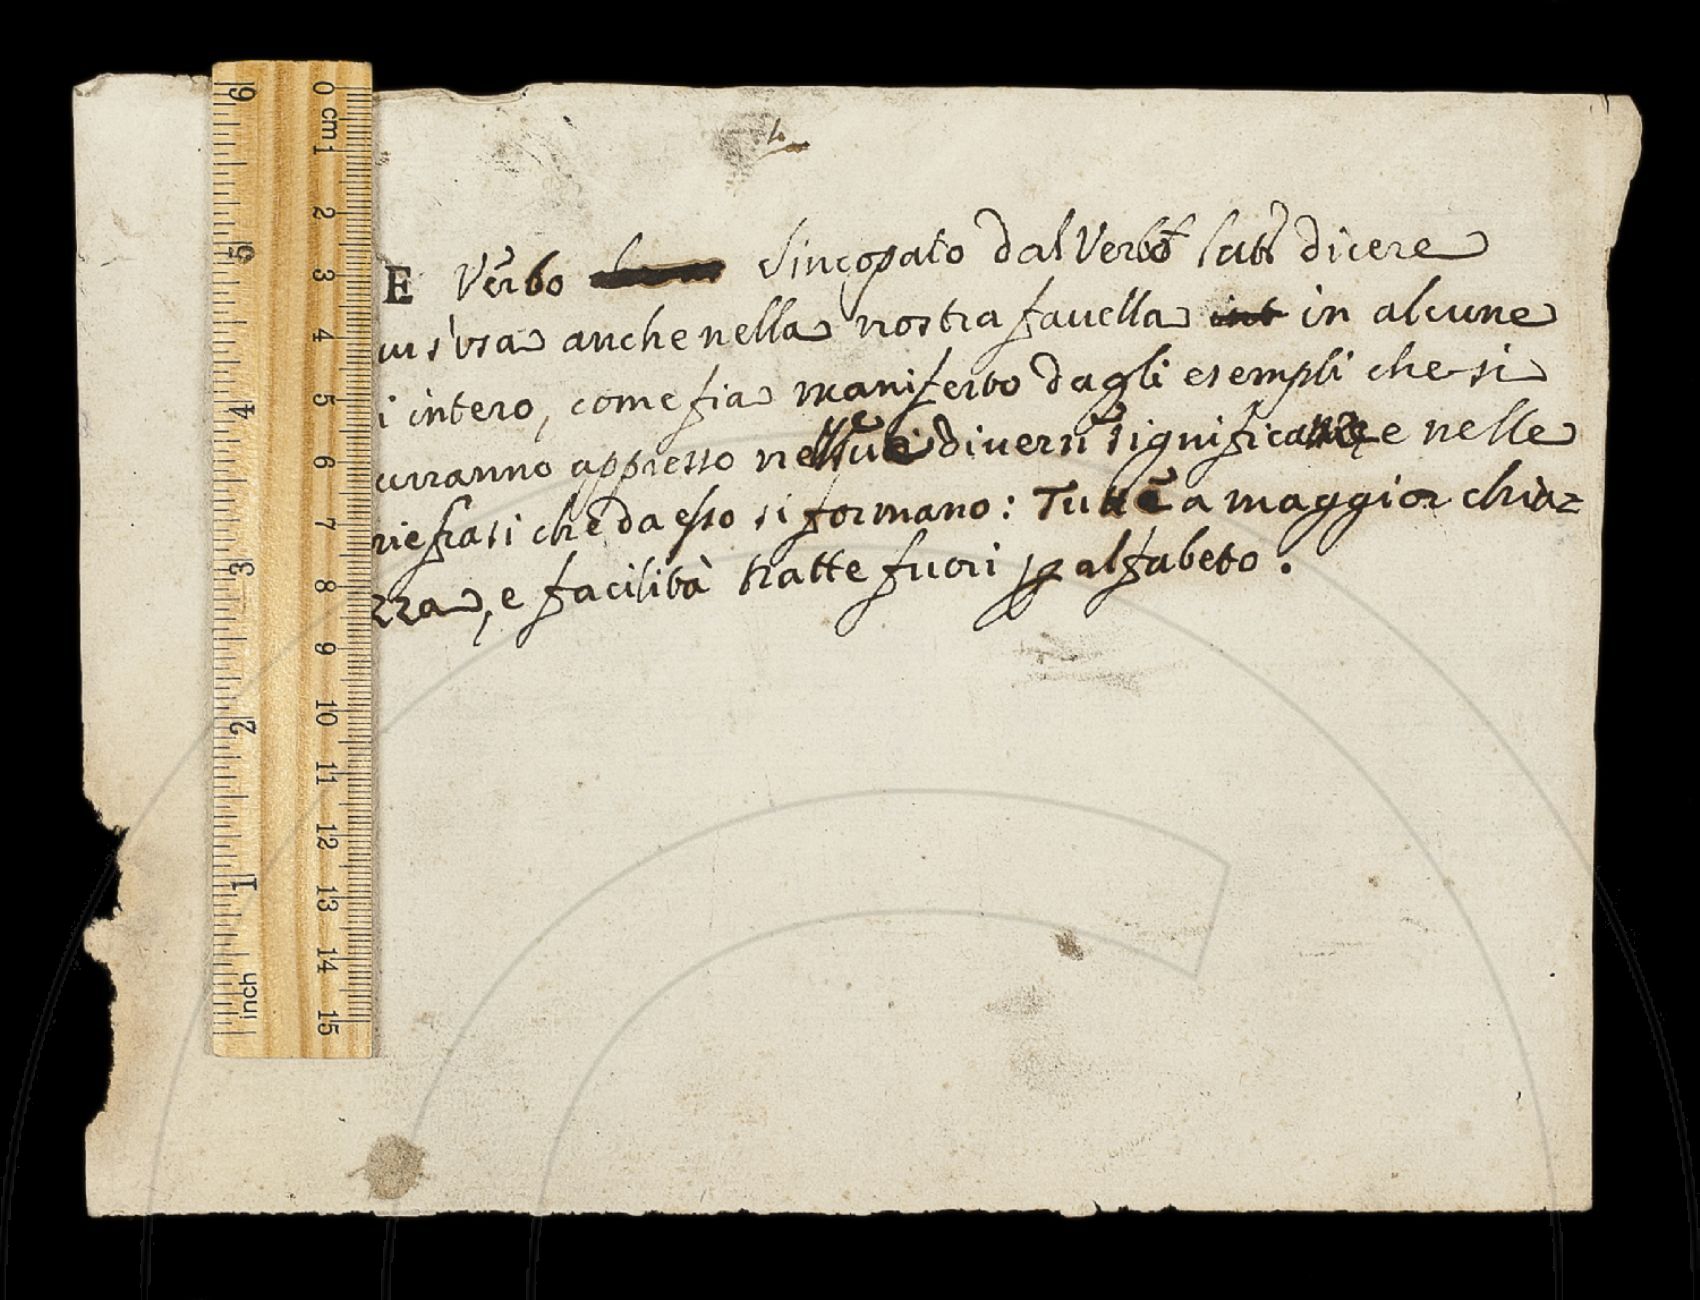 E Verbo Sincopato dal Verbo lat: dicere
ui s'usa anche nella nostra favella int in alcune
i intero, come fia manifesto dagli esempli che si
urranno appresso nelle sue diversi significanze e nelle
rie frasi che da esso si formano: Tutte a maggior chia=
zza, e facilità tratte fuori p alfabeto.
6 5 4 3 2 1 inch
0 cm 1 2 3 4 5 6 7 8 9 10 11 12 13 14 15